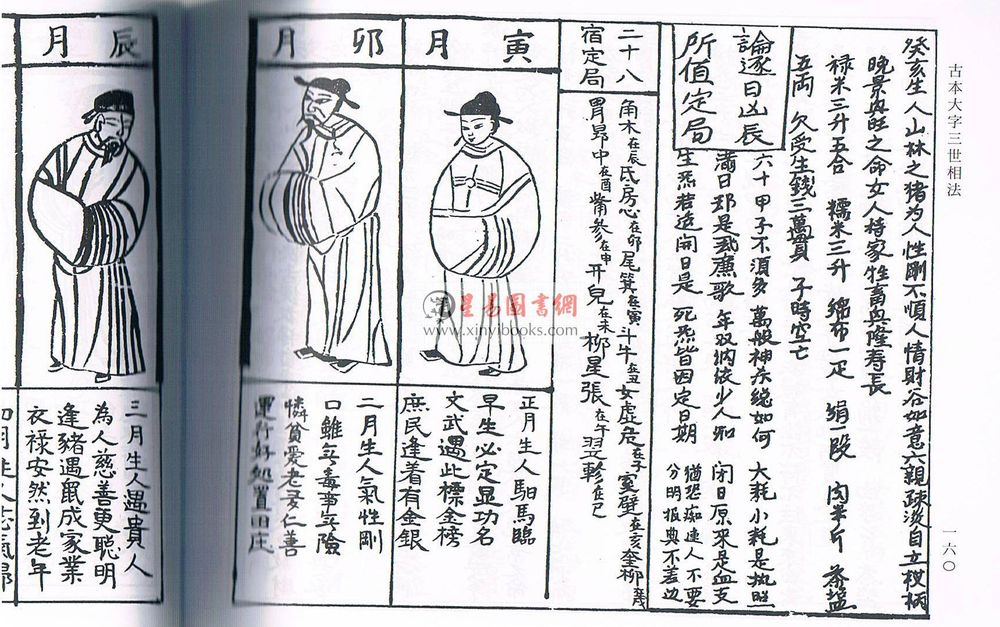 古本大字三世相法
一六〇
癸亥生人山林之猪为人性剛不順人情財谷如意六親疎淡自立权柄
晩景興旺之命女人持家牲畜興隆寿長
禄米三升五合 糯米三升 綿布一疋 絹一段 肉半斤 茶塩
五両 欠受生錢三萬貫 子時空亡
論逐日凶辰
所值定局
六十甲子不須多 萬般神杀総如何 大耗小耗是执照
年双納依少人知 閉日原來是血支
生炁若造開日是 死炁皆因定日期 分明报與不差边
二十八
宿定局
角木在辰氐房心在卯尾箕在寅斗牛在丑女虚危在子室壁在亥奎
胃昴中在酉觜参在申 在未柳星張在午翌軫在巳
寅月
正月生人馹馬臨
早生必定显功名
文武遇此標金榜
庶民逢着有金銀
卯月
二月生人氣性剛
口雖無毒事無險
憐貧愛老受仁善
運行好処置田庄
辰月
三月生人遇貴人
為人慈善更聪明
逢豬遇鼠成家業
衣禄安然到老年
星易圖書網
www.xinyibooks.com